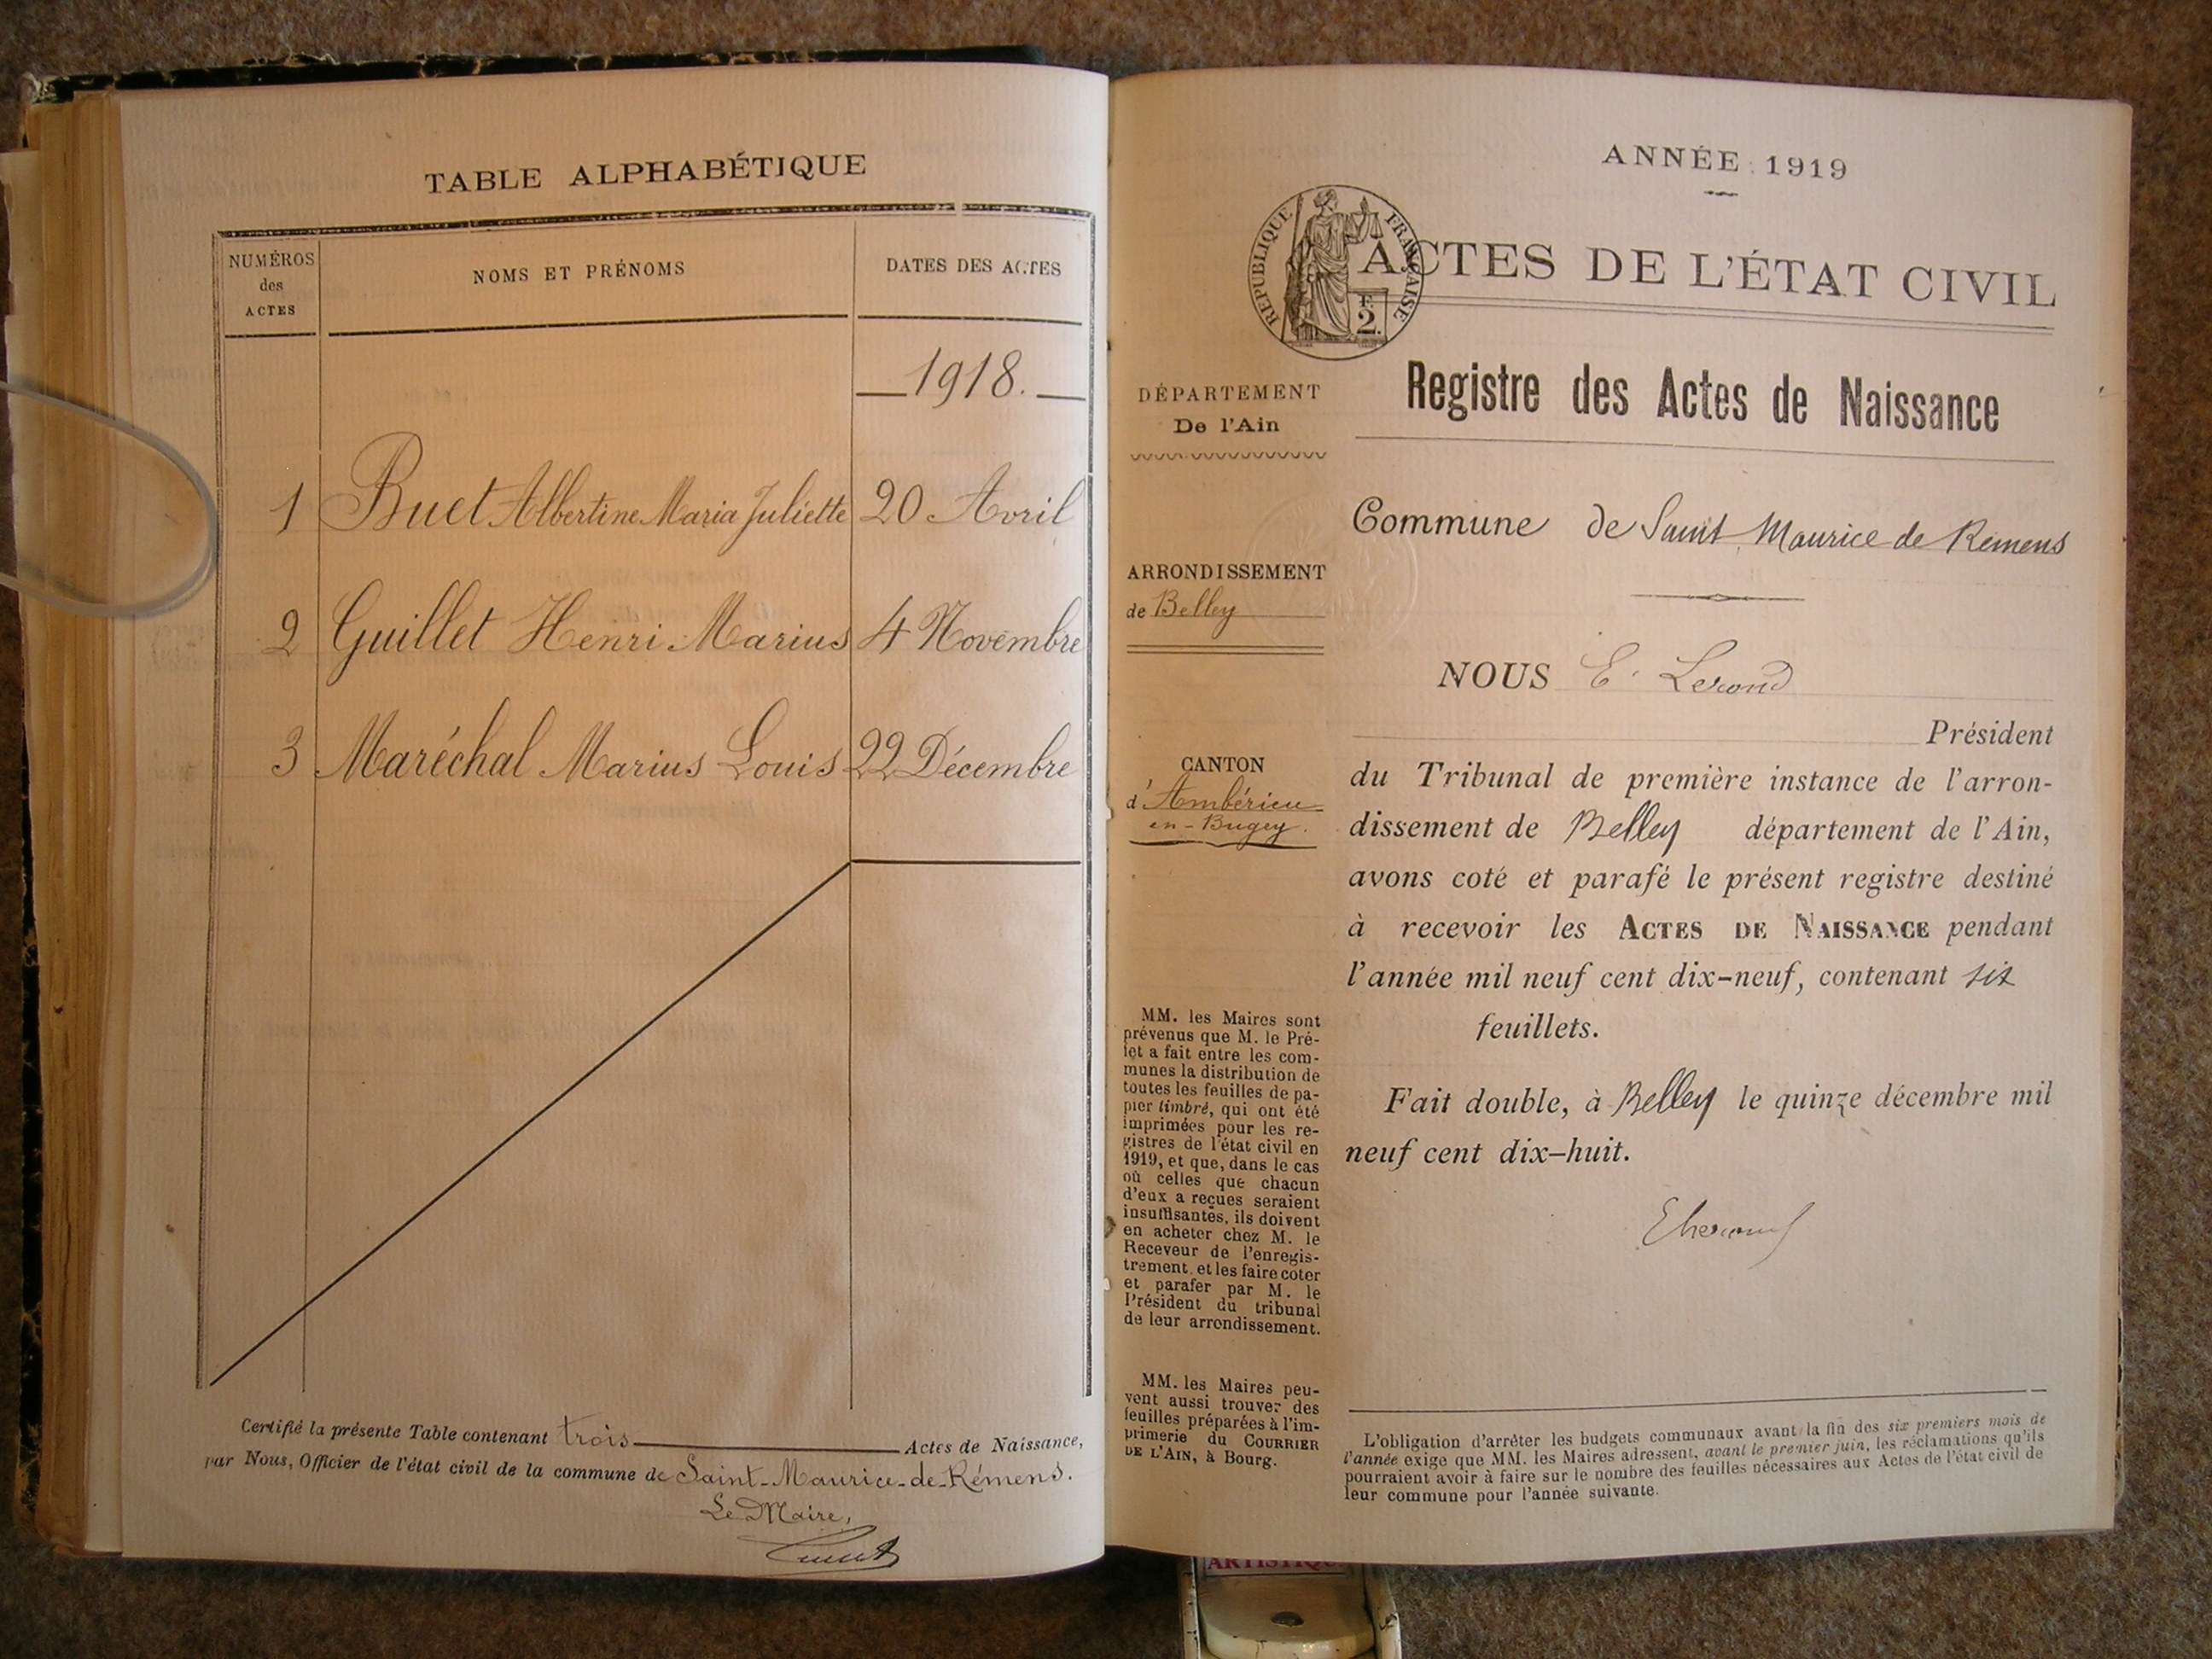 TABLE ALPHABÉTIQUE
NUMÉROS
des
ACTES
NOMS ET PRÉNOMS
DATES DES ACTES
1918.
1 Buet Albertine Maria Juliette 20 Avril
2 Guillet Henri Marius 4 Novembre
3 Maréchal Marius Louis 22 Décembre
Certifié la présente Table contenant trois Actes de Naissance,
par Nous, Officier de l'état civil de la commune de Saint-Maurice-de-Rémens.
Le Maire,
ANNÉE 1919
RÉPUBLIQUE FRANÇAISE
F.
2.
ACTES DE L'ÉTAT CIVIL
Registre des Actes de Naissance
DÉPARTEMENT
De l'Ain
ARRONDISSEMENT
de Belley
CANTON
d'Ambérieu
en-Bugey.
MM. les Maires sont
prévenus que M. le Pré-
fet a fait entre les com-
munes la distribution de
toutes les feuilles de pa-
pier timbré, qui ont été
imprimées pour les re-
gistres de l'état civil en
1919, et que, dans le cas
où celles que chacun
d'eux a reçues seraient
insuffisantes, ils doivent
en acheter chez M. le
Receveur de l'enregis-
trement et les faire coter
et parafer par M. le
Président du tribunal
de leur arrondissement.
MM. les Maires peu-
vent aussi trouver des
feuilles préparées à l'im-
primerie du COURRIER
DE L'AIN, à Bourg.
Commune de Saint Maurice de Rémens
NOUS E. Lerond
Président
du Tribunal de première instance de l'arron-
dissement de Belley département de l'Ain,
avons coté et parafé le présent registre destiné
à recevoir les ACTES DE NAISSANCE pendant
l'année mil neuf cent dix-neuf, contenant six
feuillets.
Fait double, à Belley le quinze décembre mil
neuf cent dix-huit.
L'obligation d'arrêter les budgets communaux avant la fin des six premiers mois de
l'année exige que MM. les Maires adressent, avant le premier juin, les réclamations qu'ils
pourraient avoir à faire sur le nombre des feuilles nécessaires aux Actes de l'état civil de
leur commune pour l'année suivante.